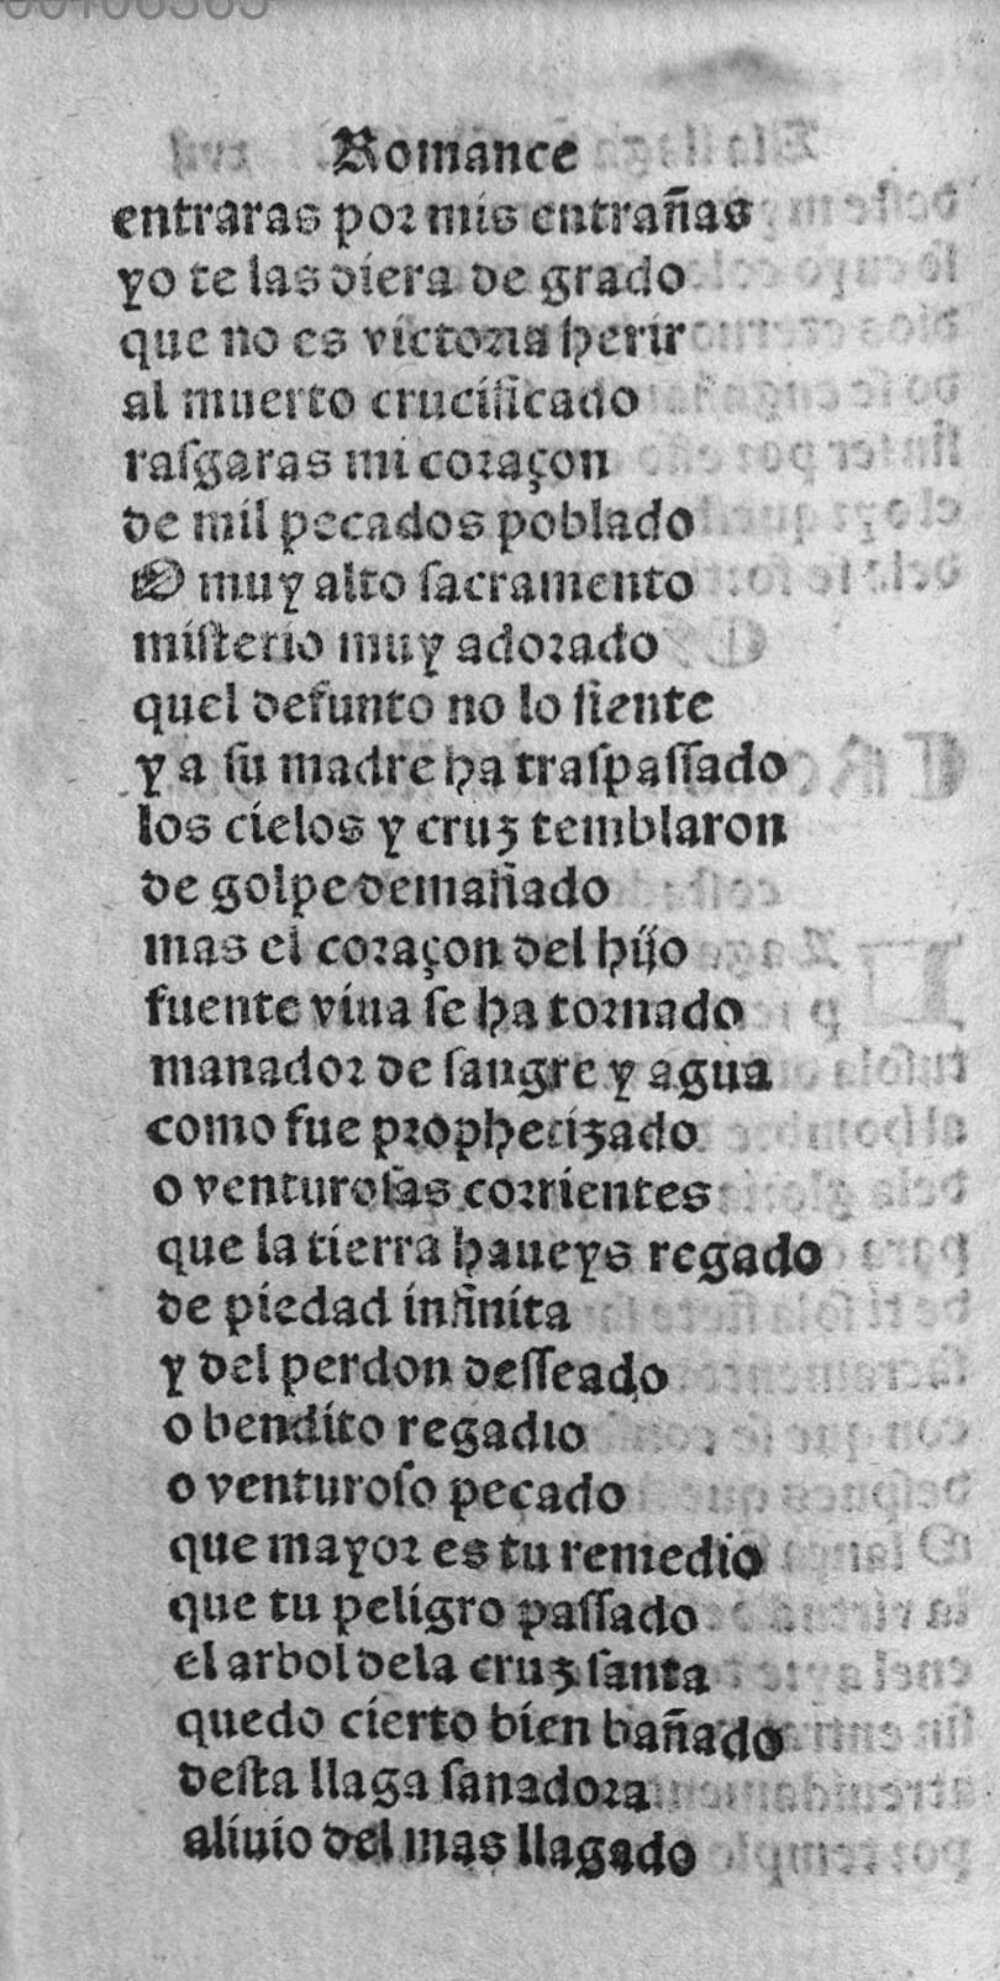 Romance
entraras por mis entrañas
yo te las diera de grado
que no es victoria herir
al muerto crucificado
raſgaras mi coraçon
de mil pecados poblado
O muy alto ſacramento
miſterio muy adorado
quel defunto no lo ſiente
y a ſu madre ha traſpaſſado
los cielos y cruz temblaron
de golpe demaſiado
mas el coraçon del hijo
fuente viua ſe ha tornado
manador de ſangre y agua
como fue prophetizado
o venturoſas corrientes
que la tierra haueys regado
de piedad infinita
y del perdon deſſeado
o bendito regadio
o venturoſo pecado
que mayor es tu remedio
que tu peligro paſſado
el arbol dela cruz ſanta
quedo cierto bien bañado
deſta llaga ſanadora
aliuio del mas llagado